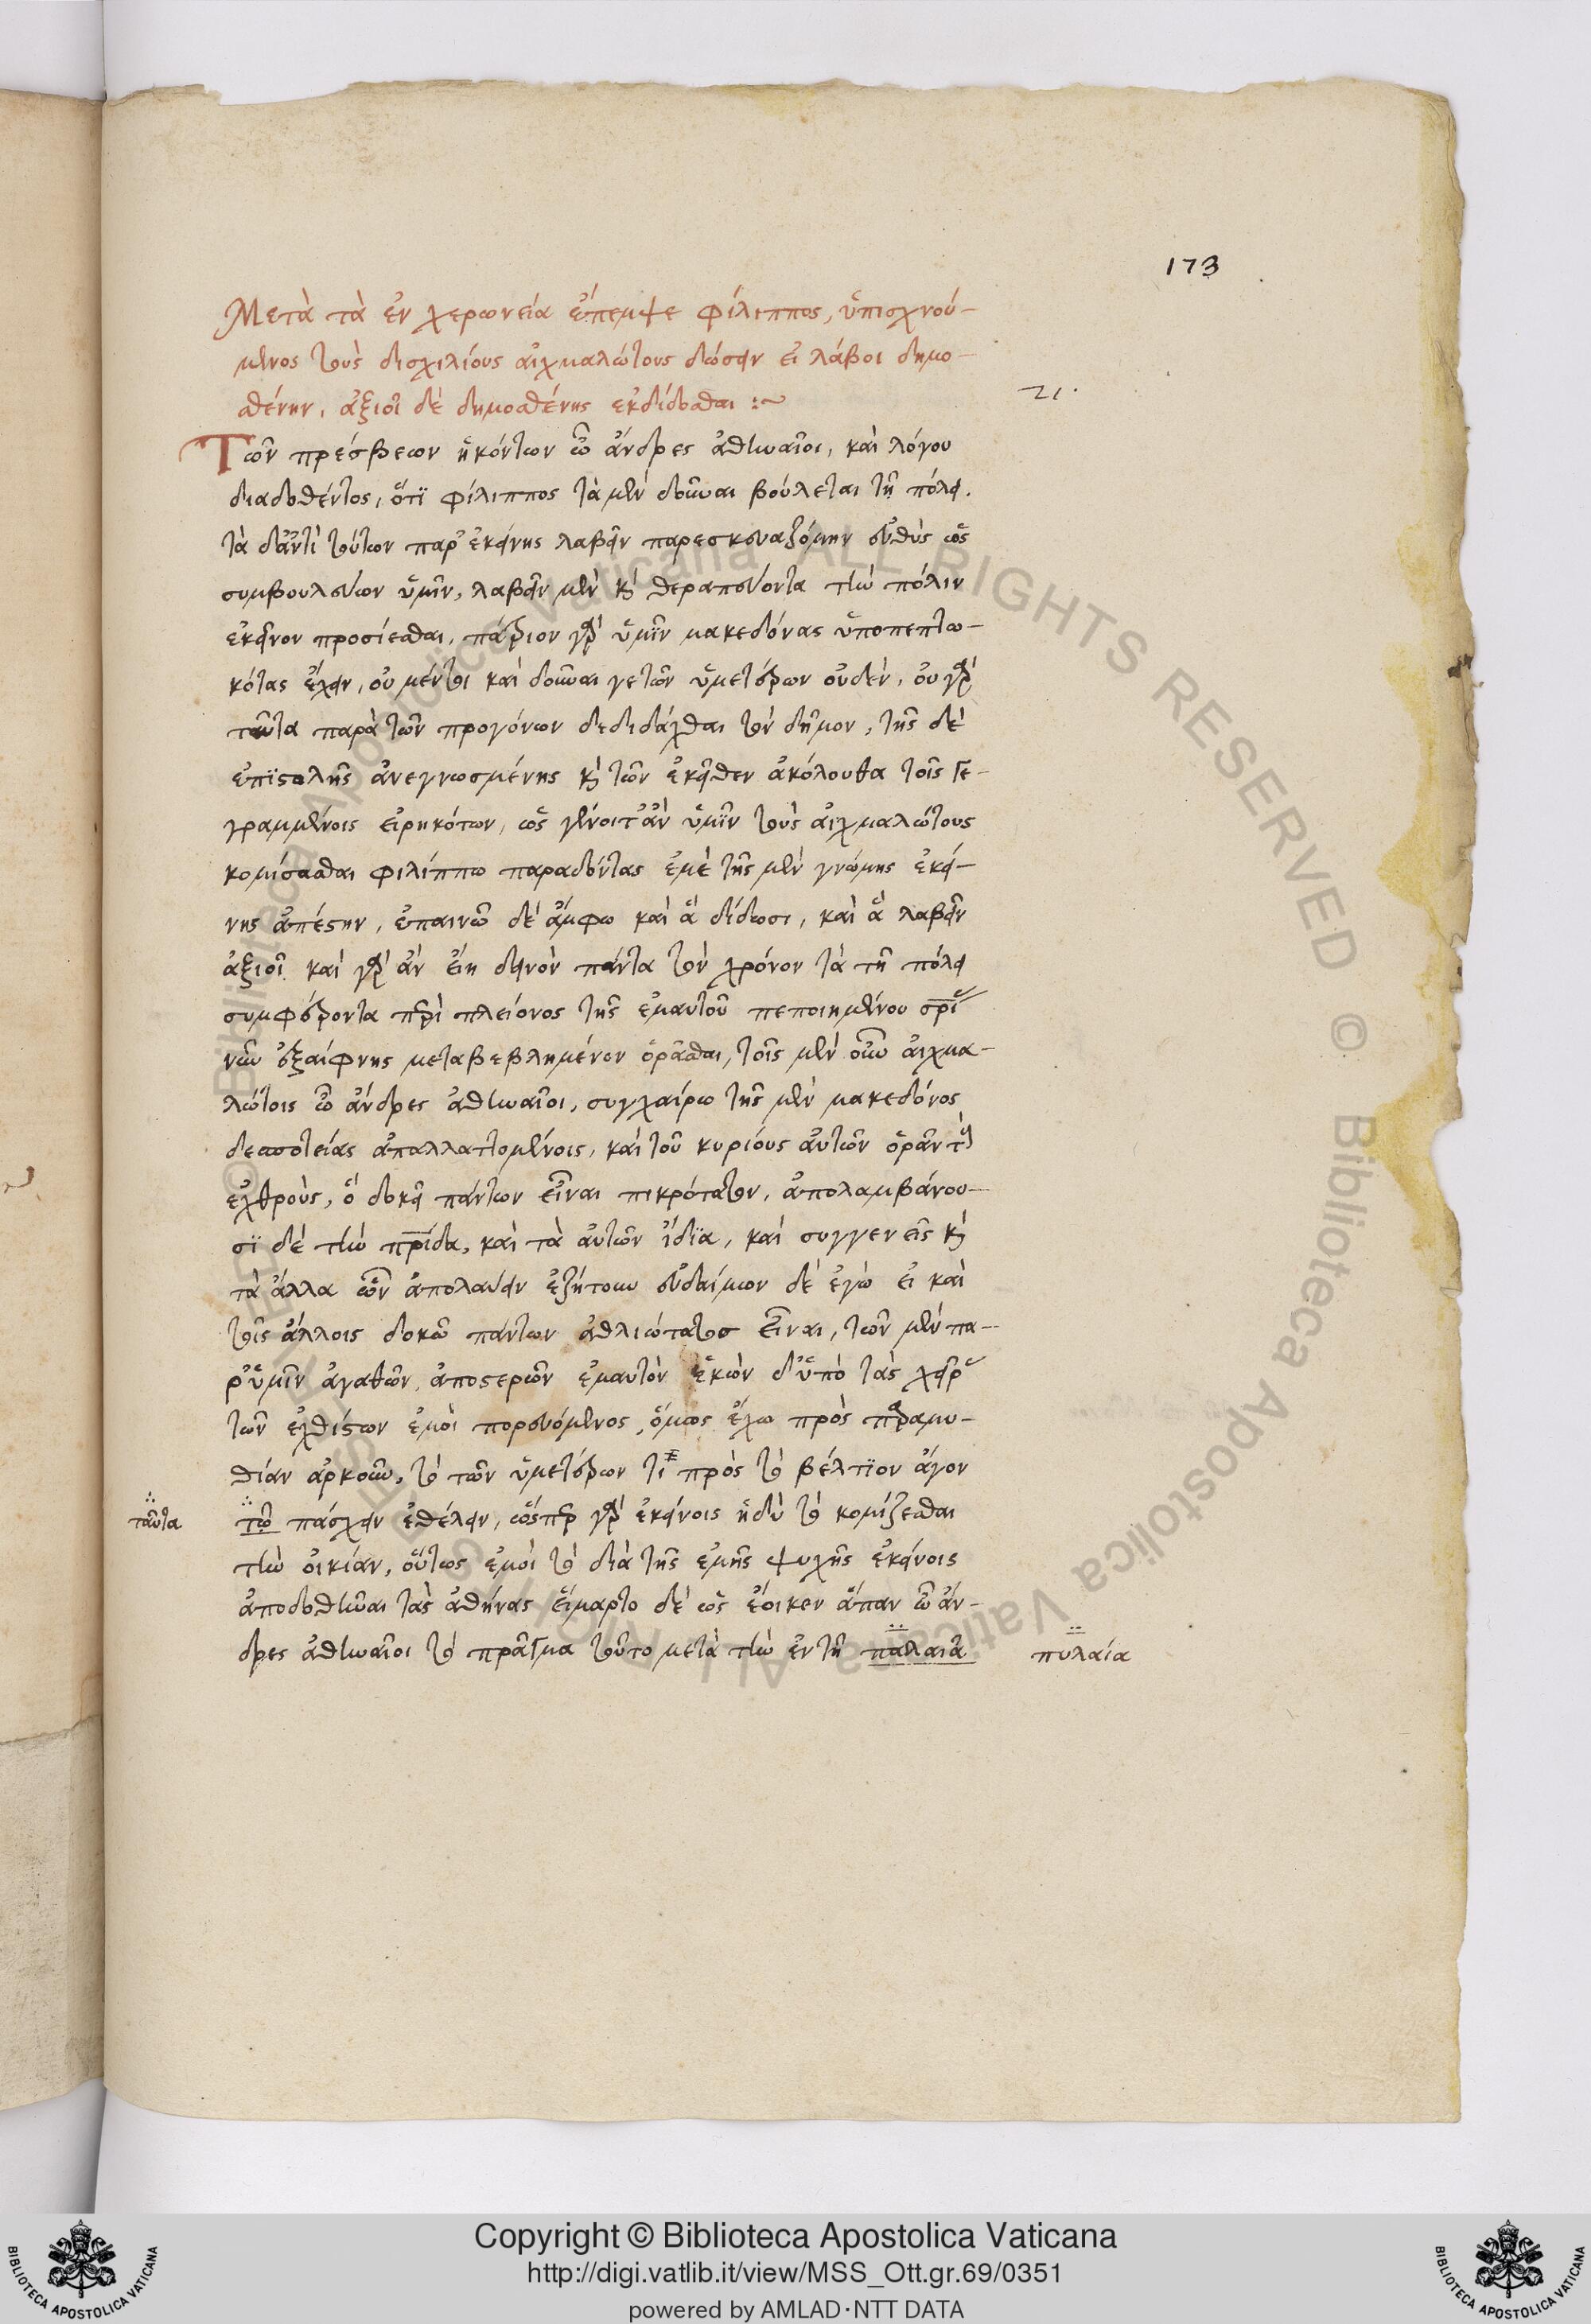 173
Μετὰ τὰ ἐν χερωνεία ἔπεμψε φίλιππος, ὑπισχνού-
μενος τοὺς δισχιλίους αἰχμαλώτους δώσειν εἰ λάβοι δημο-
σθένην, ἀξιοῖ δὲ δημοσθένης ἐκδίδοσθαι :~
21.
Τῶν πρέσβεων ἡκόντων ὦ ἄνδρες ἀθηναῖοι, καὶ λόγου
διαδοθέντος, ὅτϊ φίλιππος τὰ μὲν δοῦναι βούλεται τῆ πόλει.
τὰ δ'ἀντὶ τούτων παρ' ἐκείνης λαβεῖν παρεσκευαζόμην εὐθὺς ὡς
συμβουλεύων ὑμῖν, λαβεῖν μὲν κὴ θεραπεύοντα τὴν πόλιν
ἐκεῖνον προσίεσθαι, πάτριον γὰρ ὑμῖν μακεδόνας ὑποπεπτω-
κότας ἔχειν, οὐ μέντοι καὶ δοῦναι γε τῶν ὑμετέρων οὐδὲν, οὐ γὰρ
ταῦτα παρὰ τῶν προγόνων δεδιδάχθαι τὸν δῆμον, τῆς δὲ
ἐπϊστολῆς ἀνεγνωσμένης κὴ τῶν ἐκεῖθεν ἀκόλουθα τοῖς γε-
γραμμένοις εἰρηκότων, ὡς γένοιτ' ἂν ὑμῖν τοὺς αἰχμαλώτους
κομίσασθαι φιλίππω παραδόντας ἐμὲ τῆς μὲν γνώμης ἐκεί-
νης ἀπέστην, ἐπαινῶ δὲ ἄμφω καὶ ἃ δίδωσι, καὶ ἃ λαβεῖν
ἀξιοῖ καὶ γὰρ ἂν εἴη δεινὸν πάντα τὸν χρόνον τὰ τῆ πόλει
συμφέροντα περὶ πλείονος τῆς ἐμαυτοῦ πεποιημένου σρίας
νῦν ἐξαίφνης μεταβεβλημένον ὁρᾶσθαι, τοῖς μὲν οὖν αἰχμα-
λώτοις ὦ ἄνδρες ἀθηναῖοι, συγχαίρω τῆς μὲν μακεδόνος
δεσποτείας ἀπαλλαττομένοις, καὶ τοῦ κυρίους αὐτῶν ὁρᾶν τοὺς
ἐχθροὺς, ὃ δοκεῖ πάντων εἶναι πικρότατον, ἀπολαμβάνου-
σϊ δὲ τὴν πρίδα, καὶ τὰ αὐτῶν ἴδϊα, καὶ συγγενεῖς κὴ
τὰ ἄλλα ὧν ἀπολαύειν ἐζήτουν εὐδαίμων δὲ ἐγὼ εἰ καὶ
τοῖς ἄλλοις δοκῶ πάντων ἀθλιώτατος εἶναι, τῶν μὲν πα-
ρ' ὑμῖν ἀγαθῶν ἀποστερῶν ἐμαυτὸν ἑκὼν δ' ὑπὸ τὰς χεῖρας
τῶν ἐχθίστων ἐμοὶ πορευόμενος, ὅμως ἔχω πρὸς παραμυ-
θίαν ἀρκοῦν, τὸ τῶν ὑμετέρων τι πρὸς τὸ βέλτϊον ἄγον
ταῦτα
τῶ πάσχειν ἐθέλειν, ὥσπερ γὰρ ἐκείνοις ἡδὺ τὸ κομίζεσθαι
τὴν οἰκίαν, οὕτως ἐμοὶ τὸ διὰ τῆς ἐμῆς ψυχῆς ἐκείνοις
ἀποδοθῆναι τὰς ἀθήνας εἵμαρτο δὲ ὡς ἔοικεν ἅπαν ὦ ἄν-
δρες ἀθηναῖοι τὸ πρᾶγμα τοῦτο μετὰ τὴν ἐν τῆ παλαιᾶ
πυλαία
Copyright © Biblioteca Apostolica Vaticana
http://digi.vatlib.it/view/MSS_Ott.gr.69/0351
powered by AMLAD·NTT DATA
BIBLIOTECA APOSTOLICA VATICANA
BIBLIOTECA APOSTOLICA VATICANA